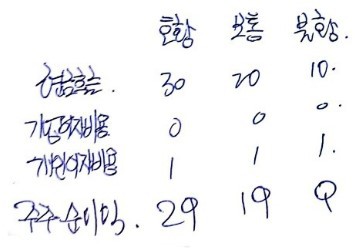 호황 보통 불황.
현금흐름. 30 20 10.
기공이자비용 0 0 0.
개인이자비용 1 1 1.
주주순이익. 29 19 9